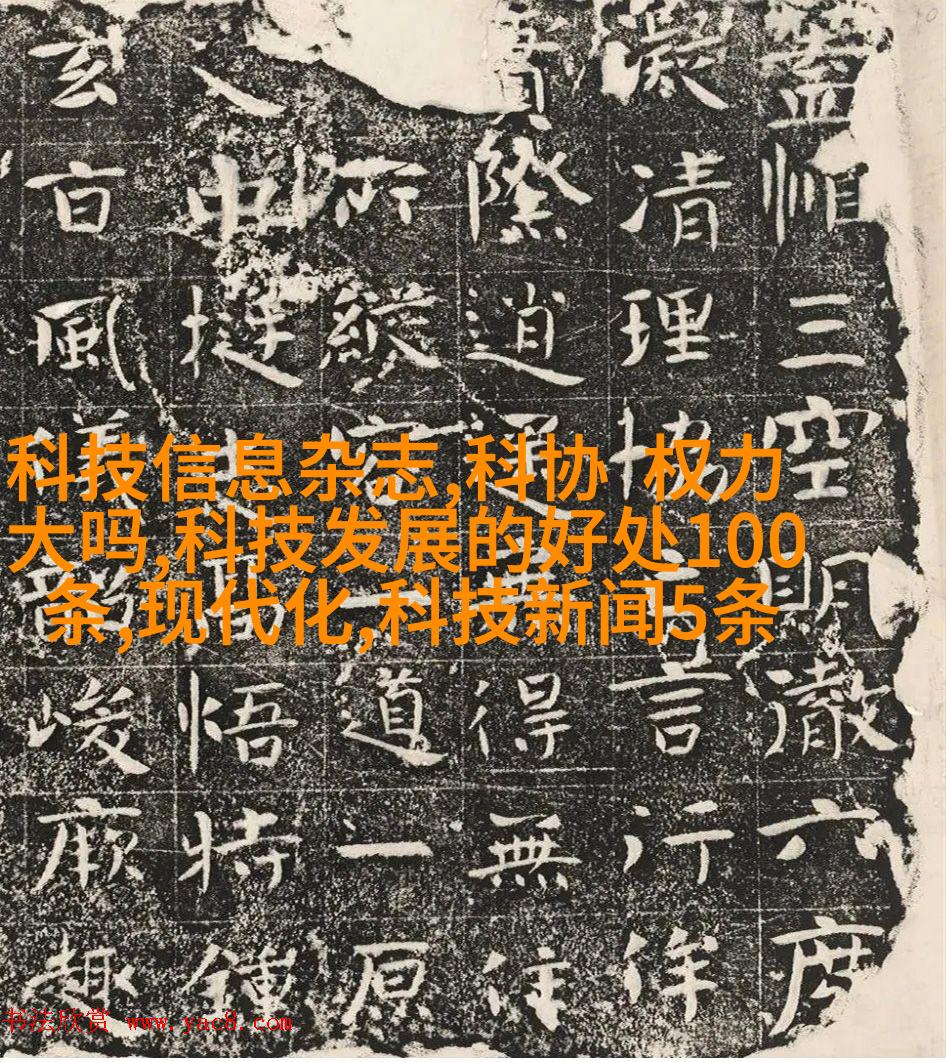 三空明澈六度
凝清理協言行侔
際逍通得無住
所縱容一道一原
人中挺悟特鍾
玄風儀峻厥趣
科技信息杂志,科协 权力
大吗,科技发展的好处100
条,现代化,科技新闻5条
书法欣赏 www.yac8.com